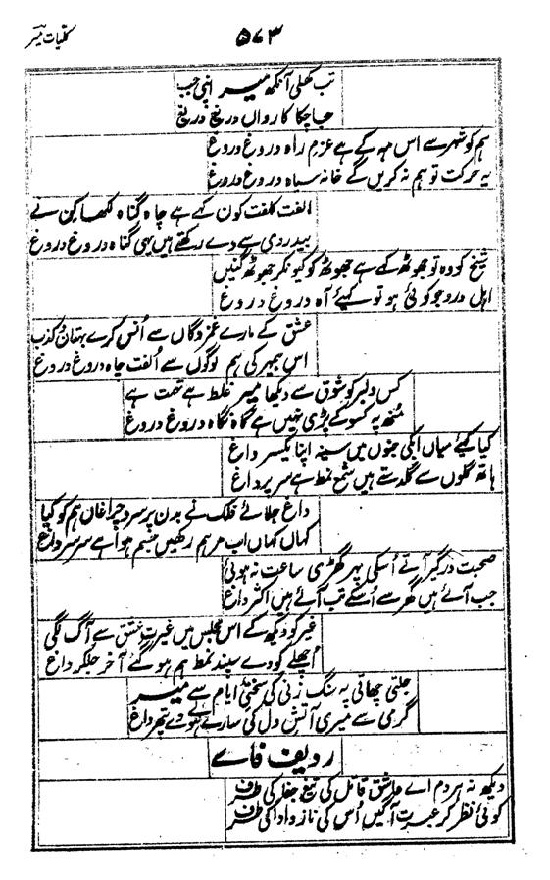 کلیات میر
۵۷۳
تب کھلی آنکھ میر اپنی جب
جا چکا کارواں دریغ دریغ
ہم کو شہر سے اس مہ کے ہے عزم راہ دروغ دروغ
یہ حرکت تو ہم نہ کریں گے خانہ سیاہ دروغ دروغ
الفت کلفت کون کہے ہے چاہ گناہ لکھا کن نے
بیدردی سے دے رکھتے ہیں یہی گناہ دروغ دروغ
شیخ کو وہ تو جھوٹھ کہے ہے جھوٹھ کو کیونکر جھوٹھ گنیں
اہل درد جو کوئی ہو تو کہیئے آہ دروغ دروغ
عشق کے مارے غمزدگاں سے اُنس کرے بہتان و کذب
اس بیمہر کی ہم لوگوں سے اُلفت چاہ دروغ دروغ
کس دلبر کو شوق سے دیکھا میر غلط ہے تہمت ہے
مُنھ پہ کسو کے پڑی نہیں ہے گاہ نگاہ دروغ دروغ
کیا کہیئے میاں ابکی جنوں میں سینہ اپنا یکسر داغ
ہاتھ گلوں سے گلدستے ہیں شمع نمط ہے سر پر داغ
داغ جلائے فلک نے بدن پر سرو چراغاں ہم کو کیا
کہاں کہاں اب مرہم رکھیں جسم ہوا ہے سرسر داغ
صحبت درگیر آگے اُسکی پہر گھڑی ساعت نہ ہوئی
جب آئے ہیں گھر سے اُسکے تب آئے ہیں اکثر داغ
غیر کو دیکھ کے اس مجلس میں غیرت عشق سے آگ لگی
اُچھلے کودے سپند نمط ہم ہو گئے آخر جلکر داغ
جلتی چھاتی پہ سنگ زنی کی سختی ایام سے میر
گرمی سے میری آتش دل کی سارے ہوئے وے پتھر داغ
ردیف فاے
دیکھ نہ ہر دم اے عاشق قاتل کی تیغ جفا کی طرف
کوئی نظر کر عبرت آگیں اُس کی ناز و ادا کی طرف